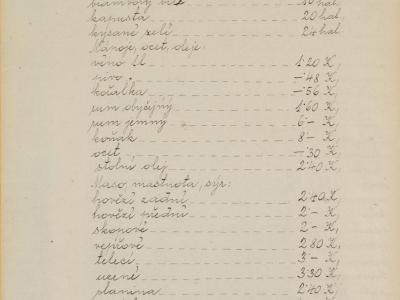 brambory 1 kg 10 hal.
kapusta 20 hal.
kysané zelí 24 hal.
Nápoje, ocet, oleje:
víno 1 l. 1·20 K,
pivo -·48 K,
kořalka -·56 K,
rum obyčejný 1·60 K,
rum jemný 6·- K,
koňak 8·- K,
ocet -·30 K,
stolní olej 2·40 K,
Maso, mastnota, sýr:
hovězí zadní 2·40 K,
hovězí přední 2·- K,
skopové 2·- K,
vepřové 2·80 K,
telecí 3·- K,
uzené 3·30 K,
slanina 2·40 K,